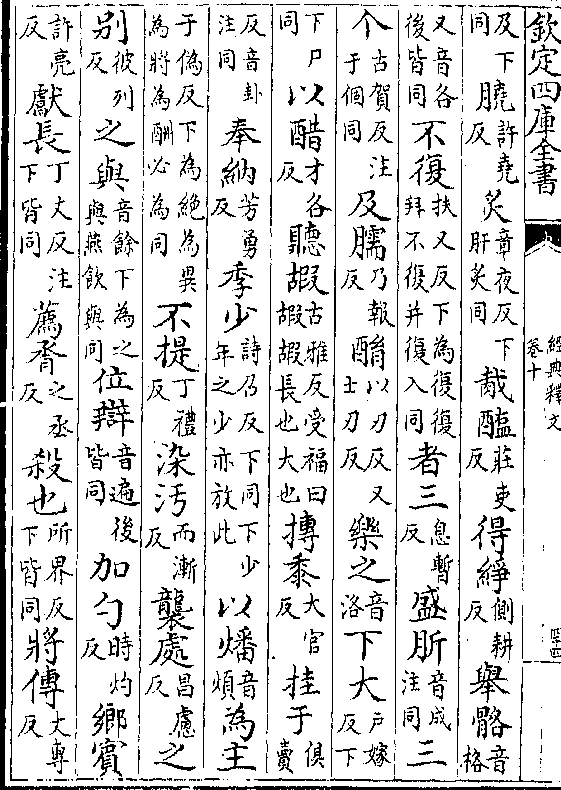 欽定四庫全書
經典釋文
卷十
四四
及下同膮許堯反炙章夜反下肝炙同胾醢莊吏反得綪側耕反舉骼音格
又音各後皆同不復扶又反下為復復拜不復并復入同者三息暫反盛肵音成注同三
个古賀反注于個同及臑乃報反酳以刃反又士刃反樂之音洛下大戶嫁反下
下尸同以醋才各反聽嘏古雅反受福曰嘏嘏長也大也摶黍大官反挂于俱賣
反音卦注同奉納芳勇反季少詩召反下同下少年之少亦放此以燔音煩為主
于偽反下為絶為異為將為酬必為同不提丁禮反染汚而漸反襲處昌慮反之
别彼列反之與音餘下為之與燕飲與同位辯音遍後皆同加勺時灼反鄉賓
許亮反獻長丁丈反注下皆同薦脀之丞反殺也所界反下皆同將傳大專反